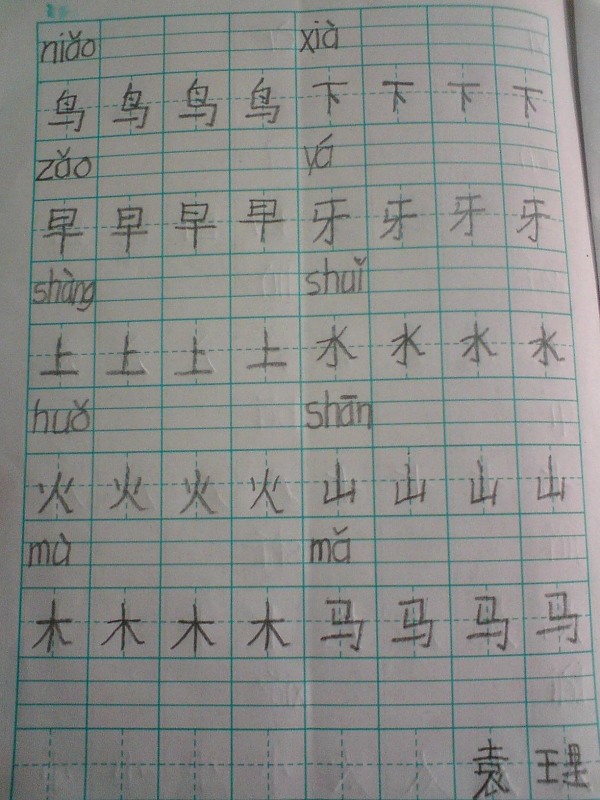 niǎo xià
鸟 鸟 鸟 鸟 下 下 下 下
zǎo yá
早 早 早 早 牙 牙 牙 牙
shàng shuǐ
上 上 上 上 水 水 水 水
huǒ shān
火 火 火 火 山 山 山 山
mù mǎ
木 木 木 木 马 马 马 马
袁